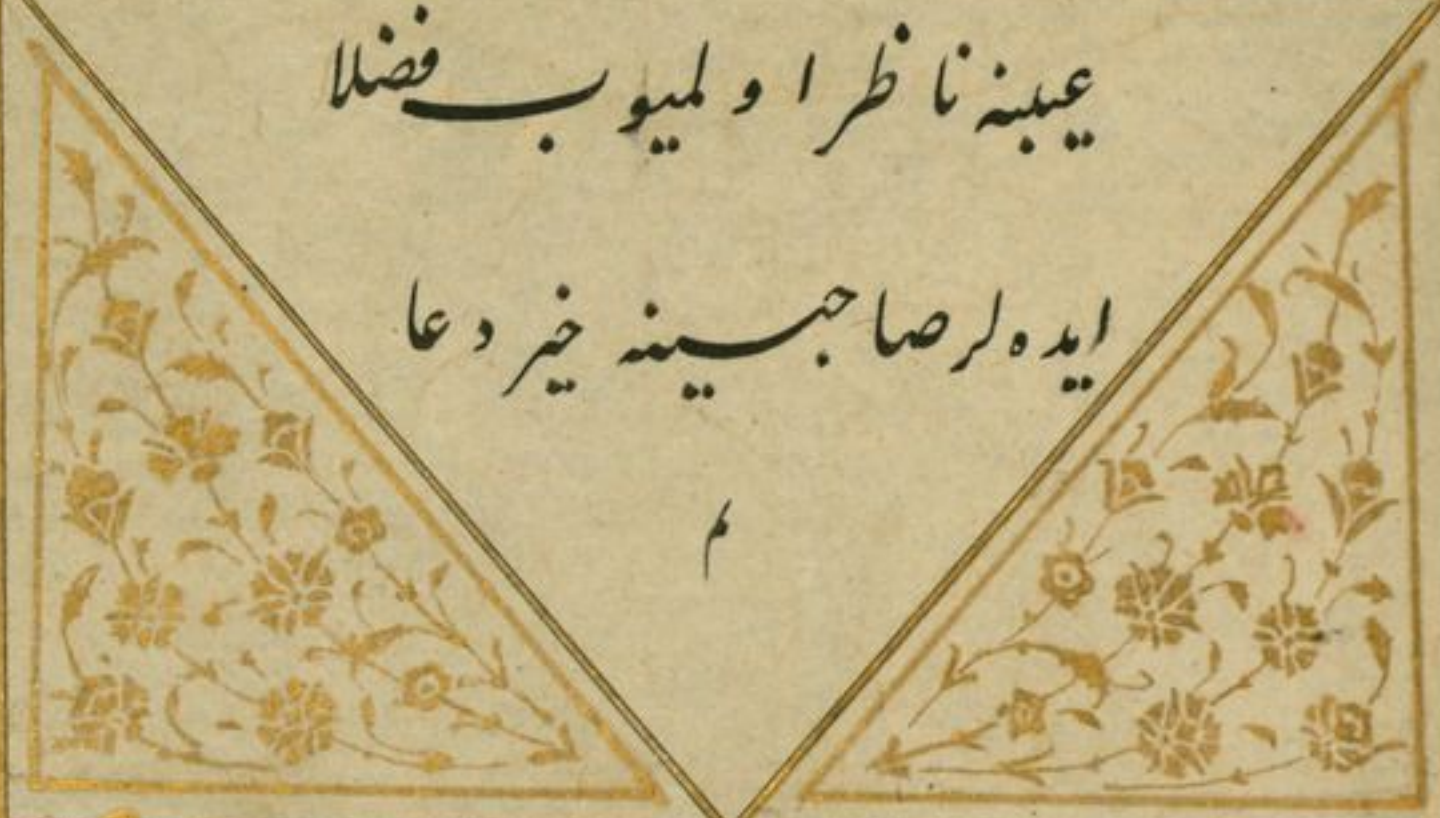 عیبینه ناظر اولمیوب فضلا
ایده لر صاحبینه خیر دعا
م